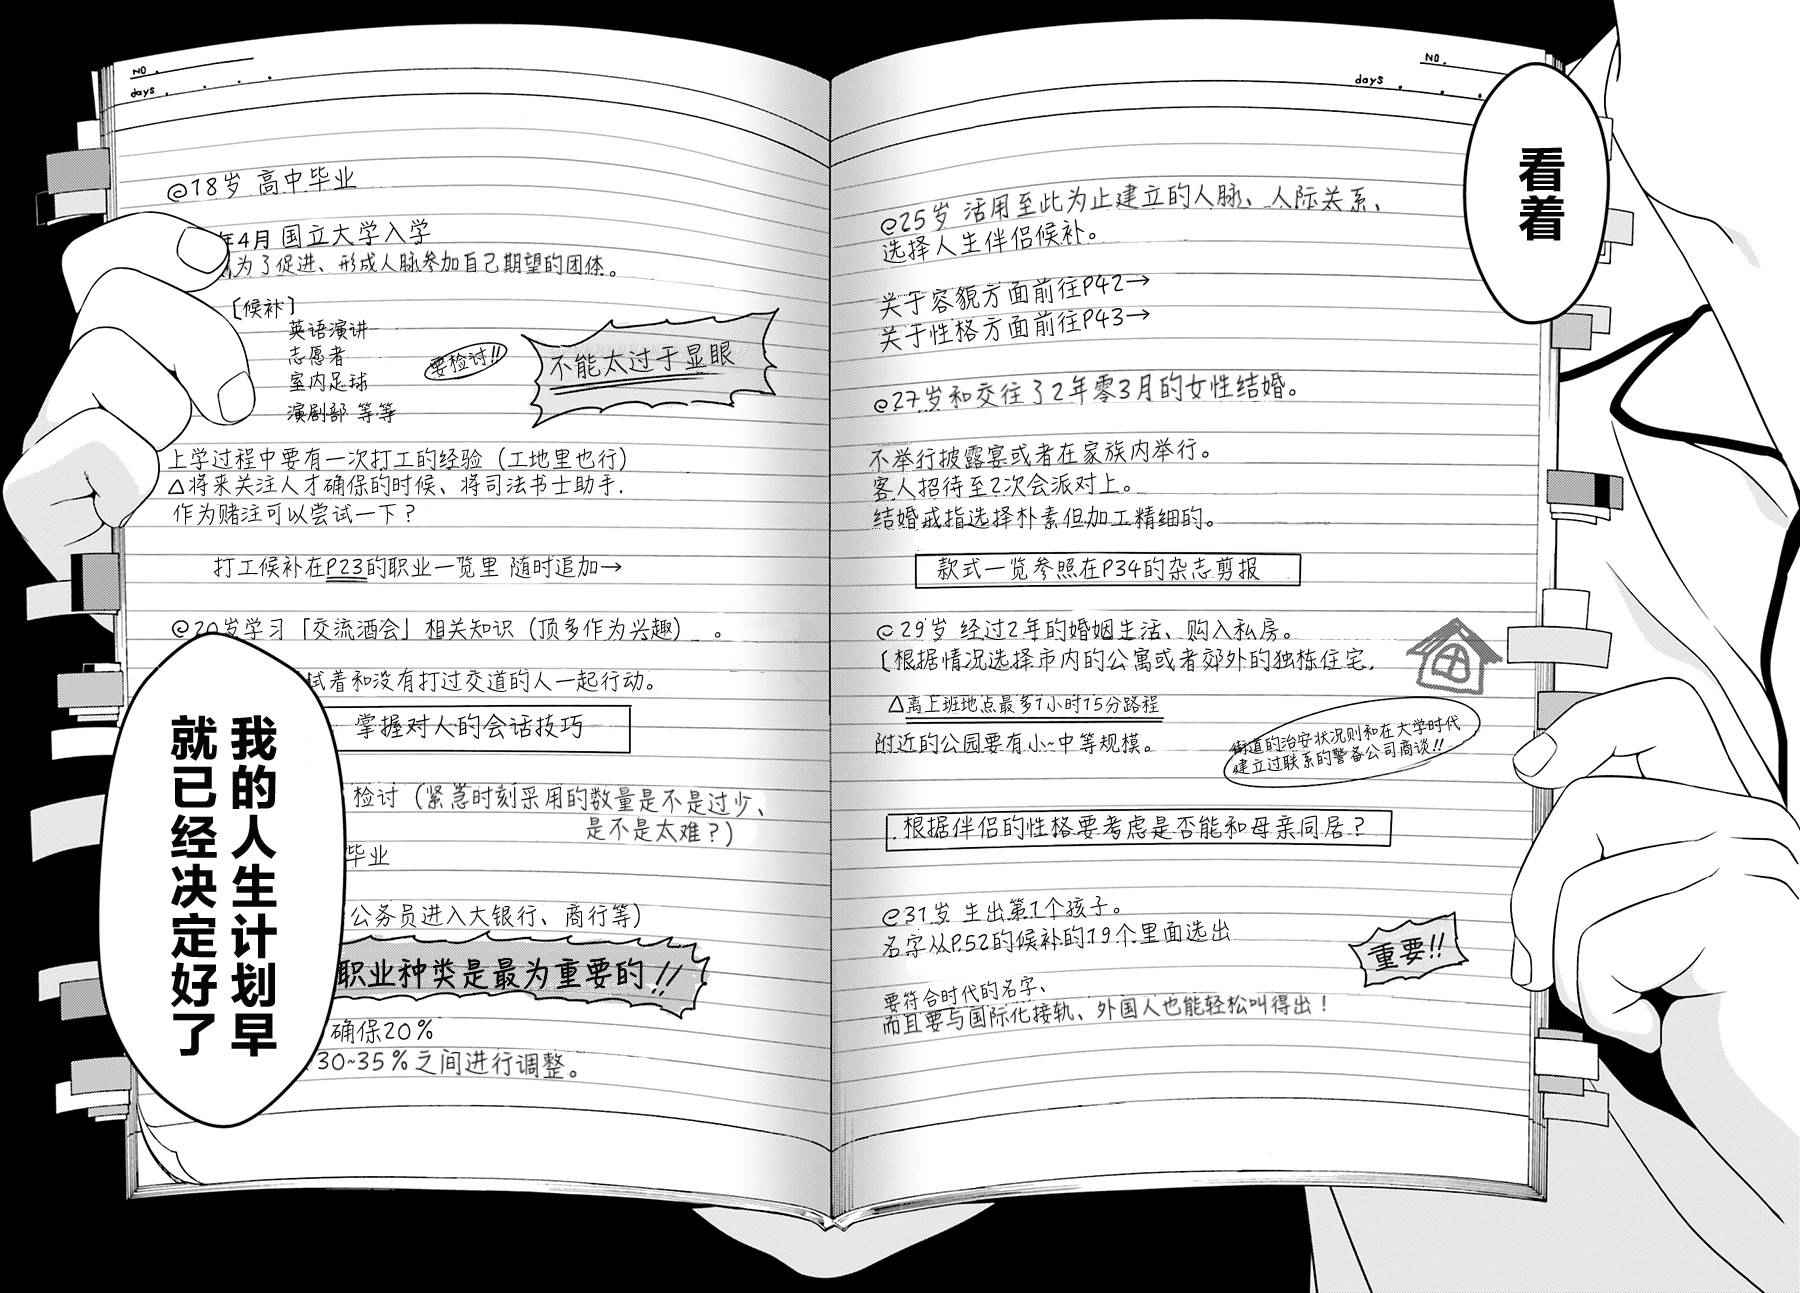 看着
NO.
days
@18岁 高中毕业
年4月 国立大学入学
为了促进、形成人脉参加自己期望的团体。
[候补]
英语演讲
志愿者
室内足球
演剧部 等等
要检讨!!
不能太过于显眼
上学过程中要有一次打工的经验（工地里也行）
△将来关注人才确保的时候、将司法书士助手.
作为赌注可以尝试一下？
打工候补在P23的职业一览里 随时追加→
@20岁学习「交流酒会」相关知识（顶多作为兴趣）。
试着和没有打过交道的人一起行动。
掌握对人的会话技巧
检讨（紧急时刻采用的数量是不是过少、
是不是太难？）
毕业
公务员进入大银行、商行等）
职业种类是最为重要的!!
确保20%
30~35%之间进行调整。
NO.
days
@25岁 活用至此为止建立的人脉、人际关系、
选择人生伴侣候补。
关于容貌方面前往P42→
关于性格方面前往P43→
@27岁和交往了2年零3月的女性结婚。
不举行披露宴或者在家族内举行。
客人招待至2次会派对上。
结婚戒指选择朴素但加工精细的。
款式一览参照在P34的杂志剪报
@29岁 经过2年的婚姻生活、购入私房。
[根据情况选择市内的公寓或者郊外的独栋住宅.
△离上班地点最多1小时15分路程
附近的公园要有小~中等规模。
街道的治安状况则和在大学时代
建立过联系的警备公司商谈!!
根据伴侣的性格要考虑是否能和母亲同居？
@31岁 生出第1个孩子。
名字从P.52的候补的19个里面选出
重要!!
要符合时代的名字、
而且要与国际化接轨、外国人也能轻松叫得出！
我的人生计划早
就已经决定好了